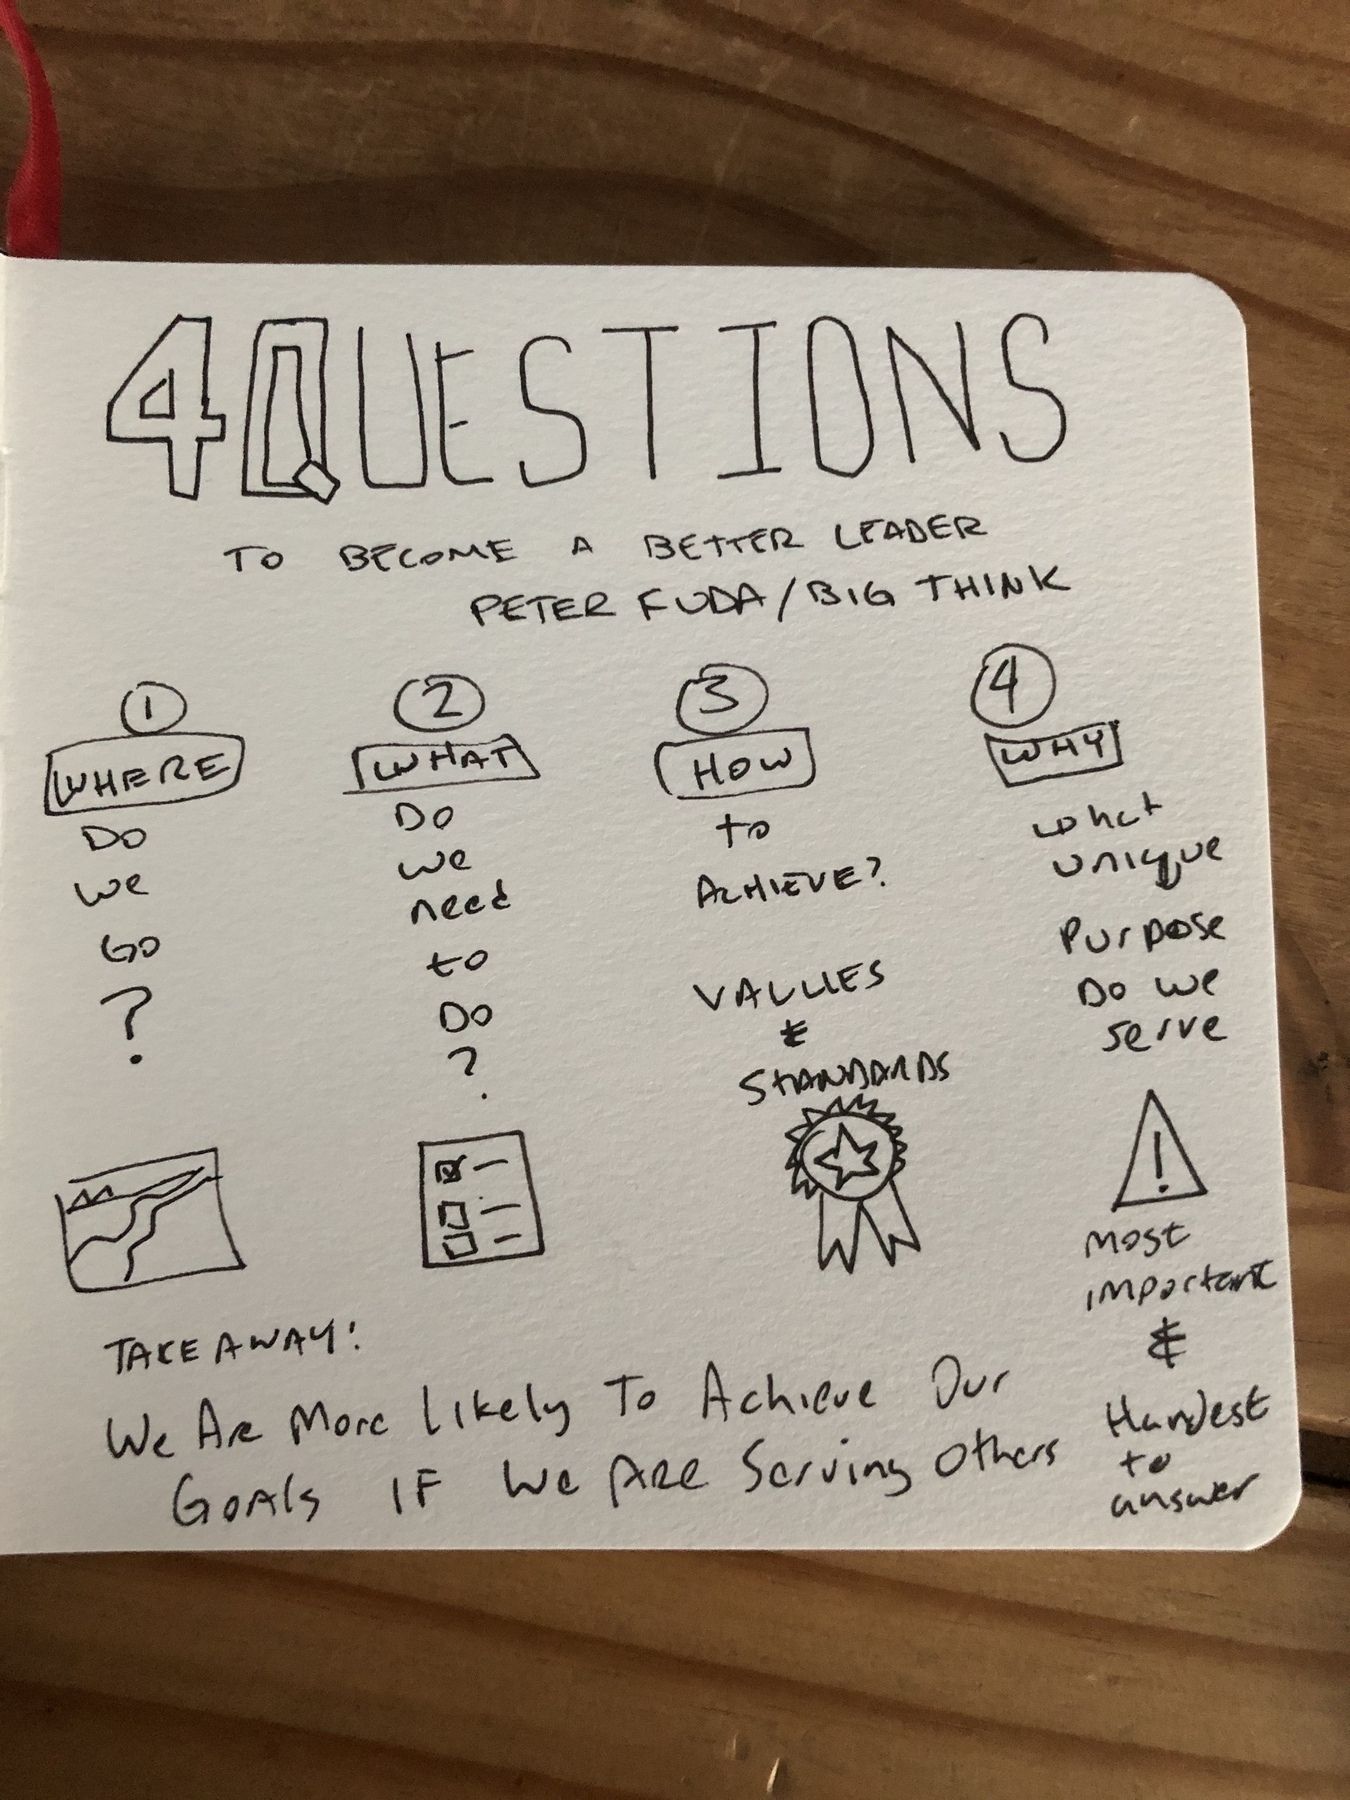 4 QUESTIONS
TO BECOME A BETTER LEADER
PETER FUDA/BIG THINK
1
WHERE
DO
we
GO
?
2
WHAT
DO
we
need
to
DO
?
3
HOW
to
ACHIEVE?
VALUES
&
STANDARDS
4
WHY
what
unique
Purpose
DO we
serve
!
most
important
&
Hardest
to
answer
TAKEAWAY:
We Are More Likely To Achieve Our
Goals IF We Are Serving Others